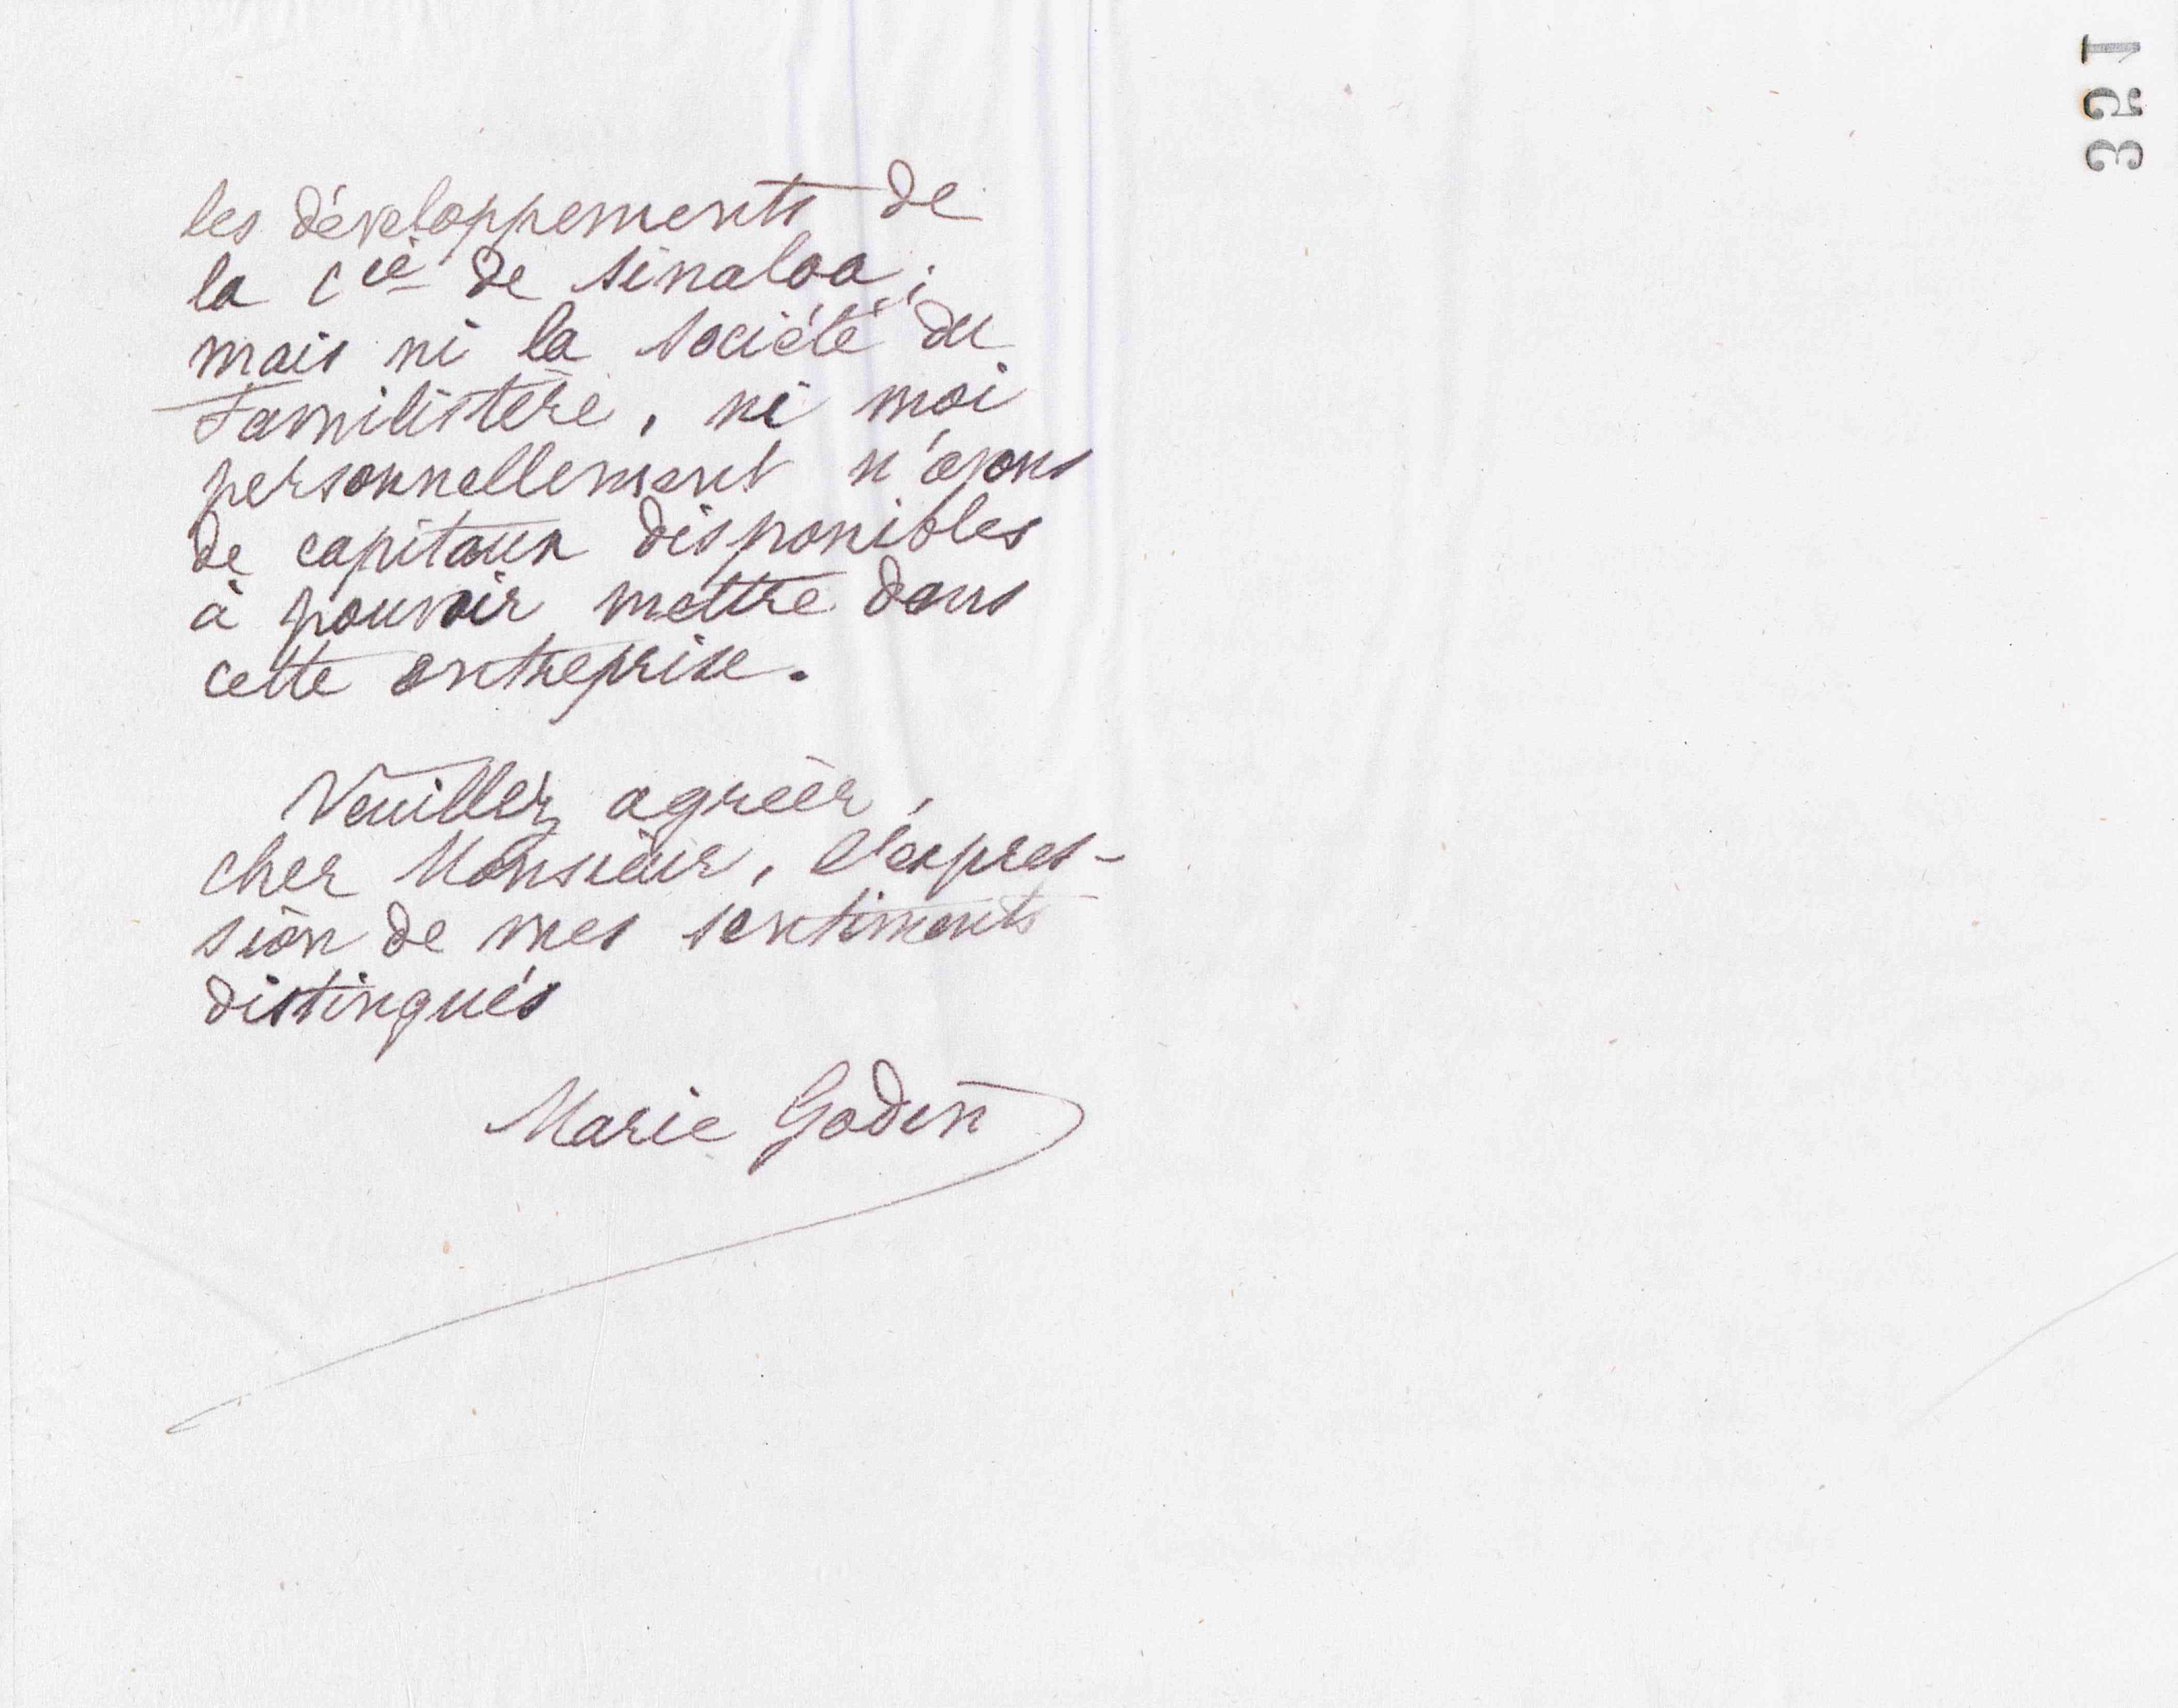 351
les développements de
la Cie de Sinaloa ;
mais ni la Société du
Familistère, ni moi
personnellement n'avons
de capitaux disponibles
à pouvoir mettre dans
cette entreprise.
Veuillez agréer,
cher Monsieur, l'expres-
sion de mes sentiments
distingués
Marie Godin